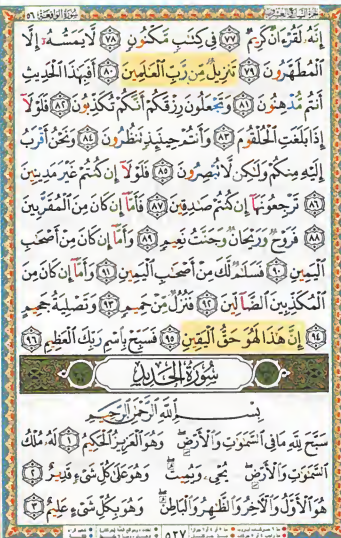 سُورَةُ الوَاقِعَةِ ٥٦
إِنَّهُۥ لَقُرْءَانٌ كَرِيمٌ ٧٧ فِى كِتَٰبٍ مَّكْنُونٍ ٧٨ لَّا يَمَسُّهُۥٓ إِلَّا
ٱلْمُطَهَّرُونَ ٧٩ تَنزِيلٌ مِّن رَّبِّ ٱلْعَٰلَمِينَ ٨٠ أَفَبِهَٰذَا ٱلْحَدِيثِ
أَنتُم مُّدْهِنُونَ ٨١ وَتَجْعَلُونَ رِزْقَكُمْ أَنَّكُمْ تُكَذِّبُونَ ٨٢ فَلَوْلَآ
إِذَا بَلَغَتِ ٱلْحُلْقُومَ ٨٣ وَأَنتُمْ حِينَئِذٍ تَنظُرُونَ ٨٤ وَنَحْنُ أَقْرَبُ
إِلَيْهِ مِنكُمْ وَلَٰكِن لَّا تُبْصِرُونَ ٨٥ فَلَوْلَآ إِن كُنتُمْ غَيْرَ مَدِينِينَ
٨٦ تَرْجِعُونَهَآ إِن كُنتُمْ صَٰدِقِينَ ٨٧ فَأَمَّآ إِن كَانَ مِنَ ٱلْمُقَرَّبِينَ
٨٨ فَرَوْحٌ وَرَيْحَانٌ وَجَنَّتُ نَعِيمٍ ٨٩ وَأَمَّآ إِن كَانَ مِنْ أَصْحَٰبِ
ٱلْيَمِينِ ٩٠ فَسَلَٰمٌ لَّكَ مِنْ أَصْحَٰبِ ٱلْيَمِينِ ٩١ وَأَمَّآ إِن كَانَ مِنَ
ٱلْمُكَذِّبِينَ ٱلضَّآلِّينَ ٩٢ فَنُزُلٌ مِّنْ حَمِيمٍ ٩٣ وَتَصْلِيَةُ جَحِيمٍ
٩٤ إِنَّ هَٰذَا لَهُوَ حَقُّ ٱلْيَقِينِ ٩٥ فَسَبِّحْ بِٱسْمِ رَبِّكَ ٱلْعَظِيمِ ٩٦
سُورَةُ الحَدِيدِ
بِسْمِ ٱللَّهِ ٱلرَّحْمَٰنِ ٱلرَّحِيمِ
سَبَّحَ لِلَّهِ مَا فِى ٱلسَّمَٰوَٰتِ وَٱلْأَرْضِ وَهُوَ ٱلْعَزِيزُ ٱلْحَكِيمُ ١ لَهُۥ مُلْكُ
ٱلسَّمَٰوَٰتِ وَٱلْأَرْضِ يُحْىِۦ وَيُمِيتُ وَهُوَ عَلَىٰ كُلِّ شَىْءٍ قَدِيرٌ ٢
هُوَ ٱلْأَوَّلُ وَٱلْءَاخِرُ وَٱلظَّٰهِرُ وَٱلْبَاطِنُ وَهُوَ بِكُلِّ شَىْءٍ عَلِيمٌ ٣
٥٣٧